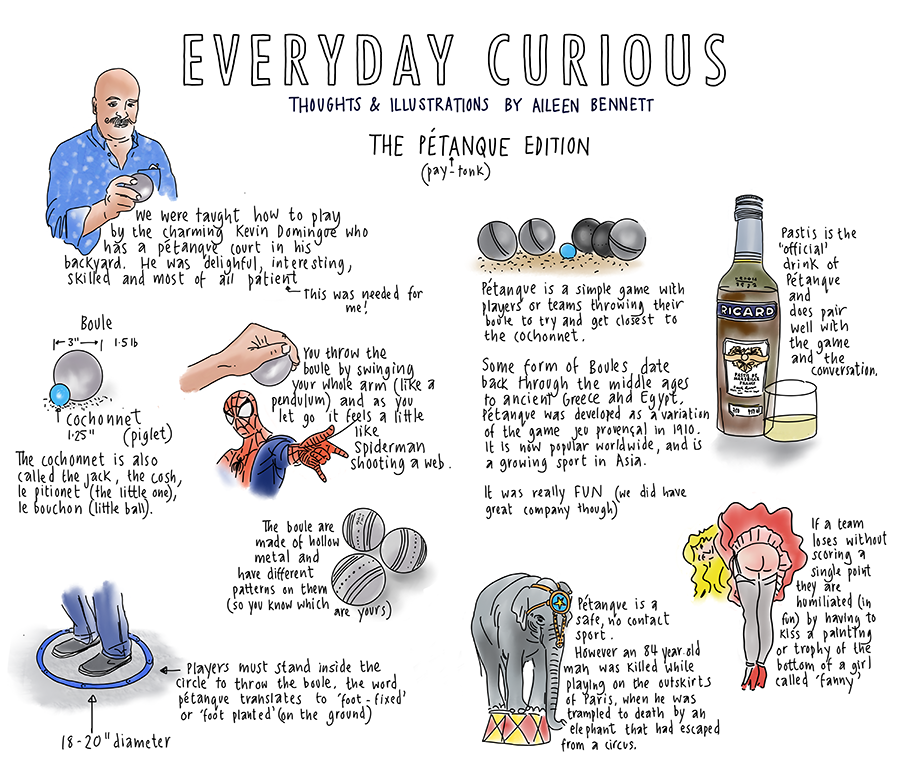 EVERYDAY CURIOUS
THOUGHTS & ILLUSTRATIONS BY AILEEN BENNETT
THE PÉTANQUE EDITION
(pay-tonk)
We were taught how to play
by the charming Kevin Domingue who
has a pétanque court in his
backyard. He was delighful, interesting,
skilled and most of all patient
This was needed for
me!
Boule
3" 1.5 lb
cochonnet
1.25" (piglet)
The cochonnet is also
called the jack, the cosh,
le pitionet (the little one),
le bouchon (little ball).
You throw the
boule by swinging
your whole arm (like a
pendulum) and as you
let go it feels a little
like
Spiderman
shooting a web.
The boule are
made of hollow
metal and
have different
patterns on them
(so you know which
are yours)
Players must stand inside the
circle to throw the boule. the word
pétanque translates to 'foot-fixed'
or 'foot planted' (on the ground)
18-20" diameter
Pétanque is a simple game with
players or teams throwing their
boule to try and get closest to
the cochonnet.
Some form of Boules date
back through the middle ages
to ancient Greece and Egypt.
Pétanque was developed as a variation
of the game jeu provençal in 1910.
It is now popular worldwide, and is
a growing sport in Asia.
It was really FUN (we did have
great company though)
RICARD
Pastis is the
"official"
drink of
Pétanque
and
does pair
well with
the game
and the
conversation.
Pétanque is a
safe, no contact
sport.
However an 84 year old
man was killed while
playing on the outskirts
of Paris, when he was
trampled to death by an
elephant that had escaped
from a circus.
If a team
loses without
scoring a
single point
they are
humiliated (in
fun) by having to
kiss a painting
or trophy of the
bottom of a girl
called 'fanny'